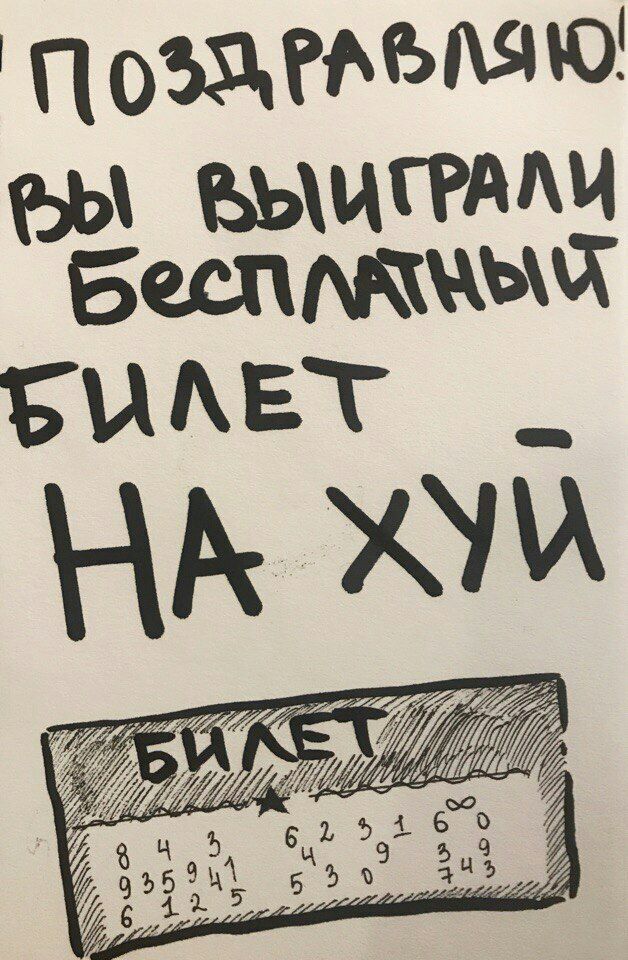 ПОЗДРАВЛЯЮ!
ВЫ ВЫИГРАЛИ
БЕСПЛАТНЫЙ
БИЛЕТ
НА ХУЙ
БИЛЕТ
8 4 3 6 2 3 1 6 ∞ 0
9 3 5 9 4 1 4 9 3 9
6 1 2 5 5 3 0 7 4 3